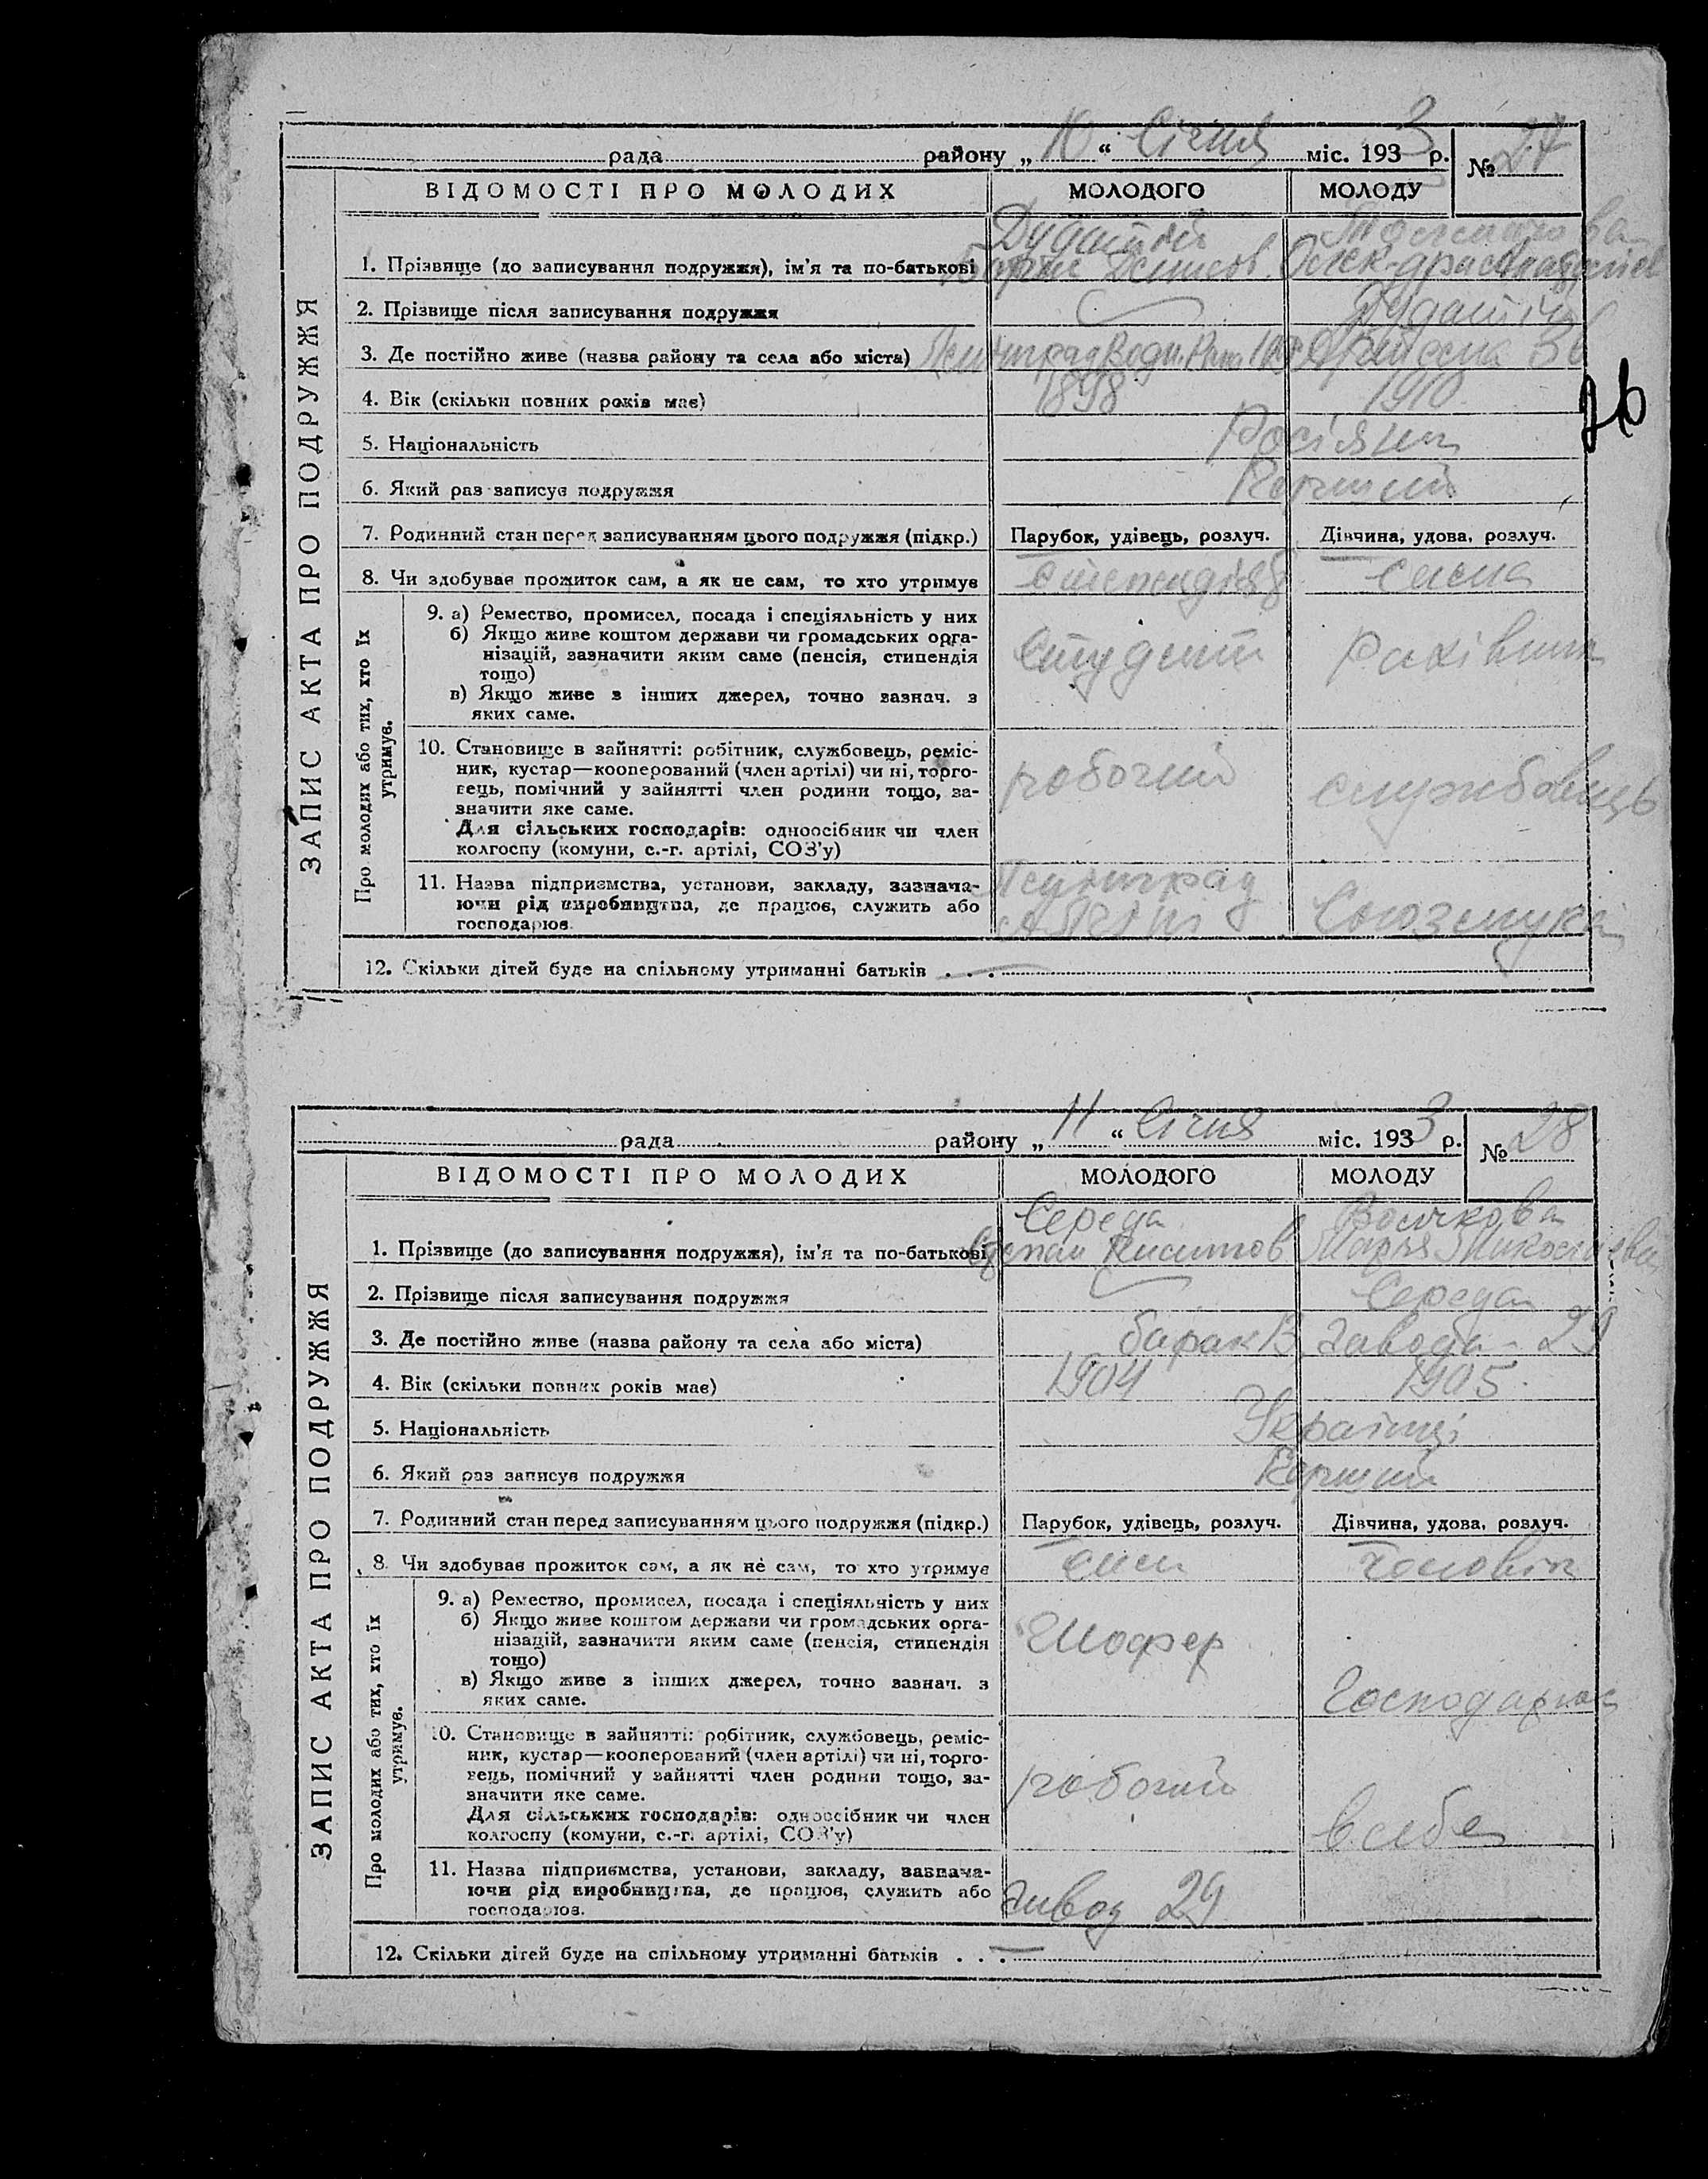 рада району „ 10 “ Січня міс. 1933 р. № 27
ВІДОМОСТІ ПРО МОЛОДИХ МОЛОДОГО МОЛОДУ
ЗАПИС АКТА ПРО ПОДРУЖЖЯ
1. Прізвище (до записування подружжя), ім'я та по-батькові Борис Денисов.
2. Прізвище після записування подружжя
3. Де постійно живе (назва району та села або міста)
4. Вік (скільки повних років має) 1898 1910
26
5. Національність Росіяни
6. Який раз записує подружжя Перший
7. Родинний стан перед записуванням цього подружжя (підкр.) Парубок, удівець, розлуч. Дівчина, удова, розлуч.
8. Чи здобуває прожиток сам, а як не сам, то хто утримує стипендія сама
Про молодих або тих, хто їх утримує.
9. а) Ремество, промисел, посада і спеціяльність у них
б) Якщо живе коштом держави чи громадських орга-
нізацій, зазначити яким саме (пенсія, стипендія
тощо) Студент Рахівник
в) Якщо живе з інших джерел, точно зазнач. з
яких саме.
10. Становище в зайнятті: робітник, службовець, реміс-
ник, кустар—кооперований (член артілі) чи ні, торго-
вець, помічний у зайнятті член родини тощо, за-
значити яке саме. робочий службовець
Для сільських господарів: одноосібник чи член
колгоспу (комуни, с.-г. артілі, СОЗ'у)
11. Назва підприємства, установи, закладу, зазнача-
ючи рід виробництва, де працює, служить або
господарює. Ленінград
12. Скільки дітей буде на спільному утриманні батьків . . . —
рада району „ 11 “ Січня міс. 1933 р. № 28
ВІДОМОСТІ ПРО МОЛОДИХ МОЛОДОГО МОЛОДУ
ЗАПИС АКТА ПРО ПОДРУЖЖЯ
Середа Волчкова
1. Прізвище (до записування подружжя), ім'я та по-батькові Степан Марья Миколаева
2. Прізвище після записування подружжя Середа
3. Де постійно живе (назва району та села або міста) барак завода - 29
4. Вік (скільки повних років має) 1904 1905
5. Національність Українці
6. Який раз записує подружжя Перший
7. Родинний стан перед записуванням цього подружжя (підкр.) Парубок, удівець, розлуч. Дівчина, удова, розлуч.
8. Чи здобуває прожиток сам, а як не сам, то хто утримує сам чоловік
Про молодих або тих, хто їх утримує.
9. а) Ремество, промисел, посада і спеціяльність у них
б) Якщо живе коштом держави чи громадських орга-
нізацій, зазначити яким саме (пенсія, стипендія
тощо) Шофер
в) Якщо живе з інших джерел, точно зазнач. з
яких саме.
10. Становище в зайнятті: робітник, службовець, реміс-
ник, кустар—кооперований (член артілі) чи ні, торго-
вець, помічний у зайнятті член родини тощо, за-
значити яке саме. робочий
Для сільських господарів: одноосібник чи член
колгоспу (комуни, с.-г. артілі, СОЗ'у) в себе
11. Назва підприємства, установи, закладу, зазнача-
ючи рід виробництва, де працює, служить або
господарює. завод 29
12. Скільки дітей буде на спільному утриманні батьків . . . —